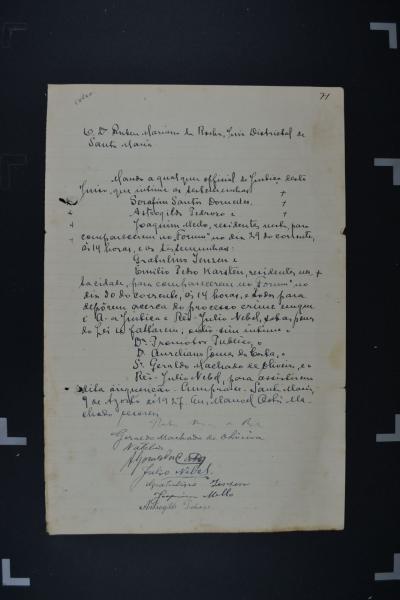 71
O Dr Ruben Mariano da Rocha, Juiz Districtal de
Santa Maria
Mando a qualquer official de Justiça deste
Juizo, que intime as testemunhas
Serafim Santos Dornelles,
Astrogildo Pedrozo e
Joaquim Mello, residentes nesta, para
comparecerem no "forum" no dia 29 do corrente,
ás 14 horas, e as testemunhas:
Gratulino Jensen e
Emilio Pedro Karsten, residentes, nes
ta cidade, para comparecerem no "forum" no
dia 30 do corrente, ás 14 horas, e todos para
depôrem acerca do processo crime em que
é A. a Justiça e Réo Julio Nebel, sob as penas
da Lei se faltarem; outro sim intime o
Dr. Promotor Publico, o
D. Aureliano Gomes da Costa, o
Sr. Geraldo Machado de Oliveira, e o
Réo Julio Nebel, para assistirem
dita inquerição. Cumpra-se. Santa Maria,
9 de Agosto de 1927. Eu, Manoel
chado escrevi
Geraldo Machado de Oliveira
Julio Nebel
Gratulino Jensen
Joaquim Mello